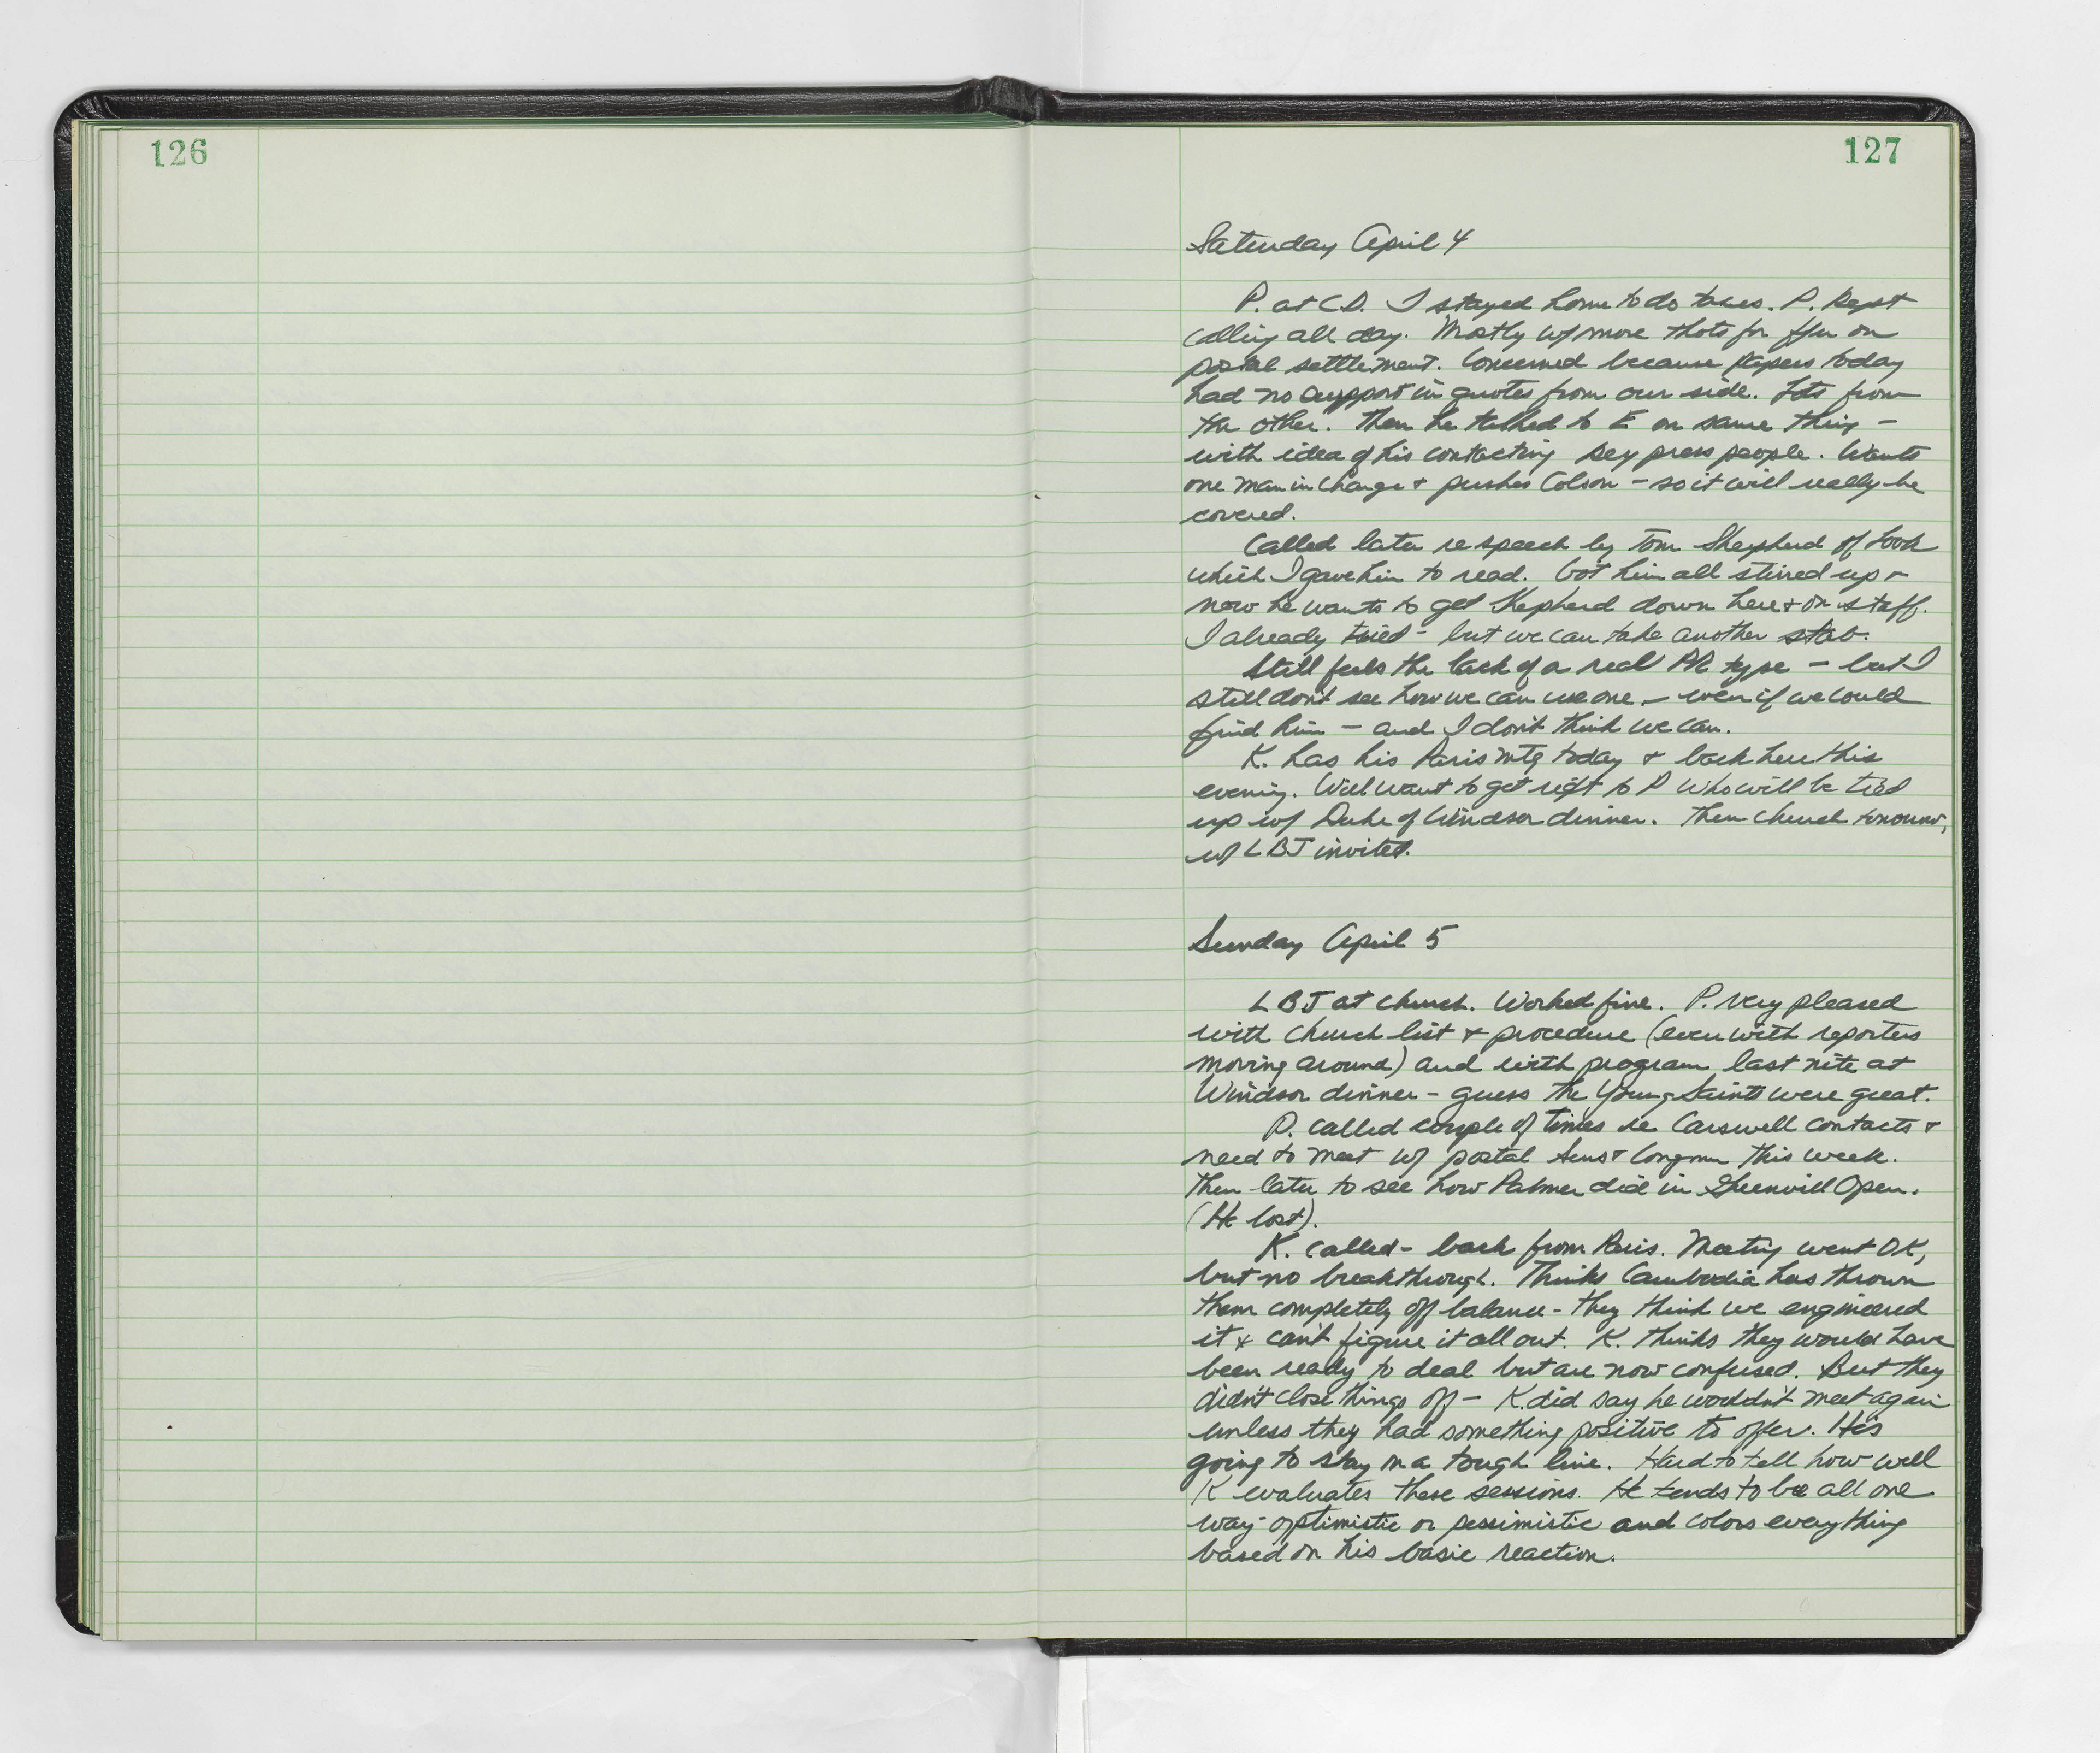 126
127
Saturday April 4
P. at C.D. I stayed home to do taxes. P. kept
calling all day. Mostly w/ more thots for ffu on
postal settlement. Concerned because papers today
had no support in quotes from our side. Lots from
the other. Then he talked to E on same thing -
with idea of his contacting key press people. Wants
one man in charge + pushes Colson - so it will really be
covered.
Called later re speech by Tom Shepherd of Look
which I gave him to read. Got him all stirred up +
now he wants to get Shepherd down here + on staff.
I already tried - but we can take another stab.
Still feels the lack of a real PR type - but I
still don't see how we can use one - even if we could
find him - and I don't think we can.
K. has his Paris mtg today + back here this
evening. Will want to get right to P who will be tied
up w/ Duke of Windsor dinner. Then church tomorrow,
w/ LBJ invited.
Sunday April 5
LBJ at church. Worked fine. P. very pleased
with church list + procedure (even with reporters
moving around) and with program last nite at
Windsor dinner - guess the Young Saints were great.
P. called couple of times re Carswell contacts +
need to meet w/ postal Sens + Congmn this week.
Then later to see how Palmer did in Greenvill Open.
(He lost).
K. called - back from Paris. Meeting went OK,
but no breakthrough. Thinks Cambodia has thrown
them completely off balance - they think we engineered
it + can't figure it all out. K. thinks they would have
been ready to deal but are now confused. But they
didn't close things off - K. did say he wouldn't meet again
unless they had something positive to offer. He's
going to stay on a tough line. Hard to tell how well
K evaluates these sessions. He tends to be all one
way - optimistic or pessimistic and colors everything
based on his basic reaction.